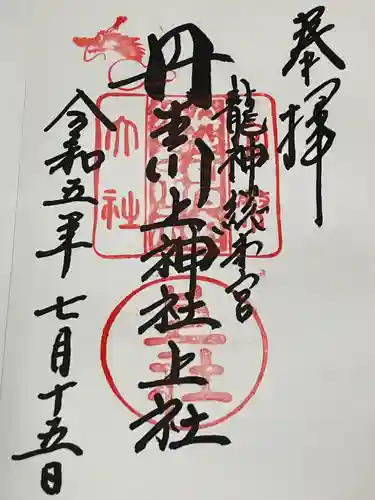 奉拝
龍神総本宮
丹生川上神社上社
令和五年七月十五日